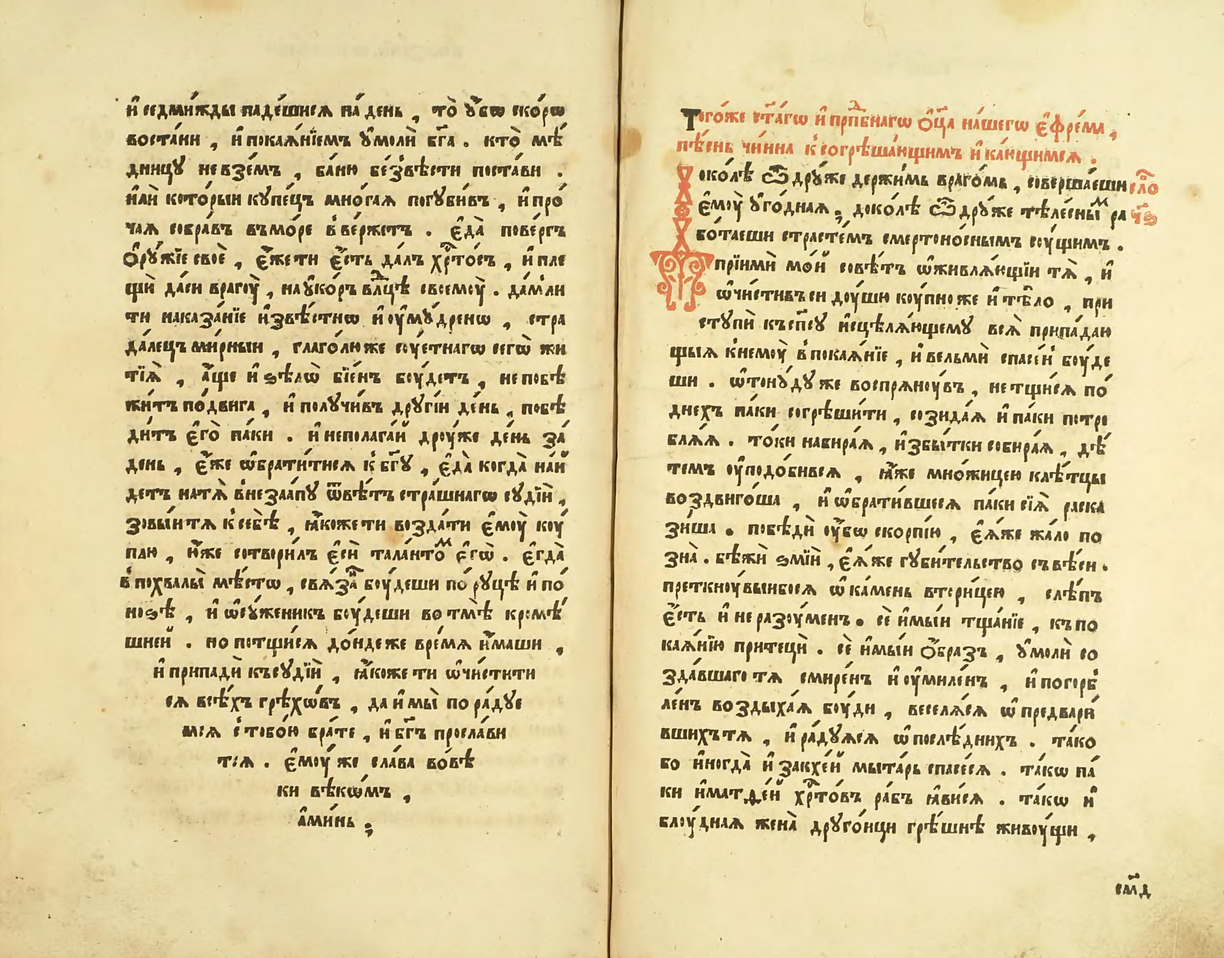 и҆ седми́жды паде́шисѧ на́ день , то̀ ᲂу҆́бѡ ско́рѡ
воста́ни , и҆ покаѧ́нїемъ ᲂу҆молѝ бг҃а . кто̀ мѣ́
дницꙋ не взе́мъ , ба́ню без̾вѣ́сти поста́ви .
и҆лѝ кото́рыи кꙋпе́цъ мно́гаѧ погꙋби́въ , и҆ про́
чаѧ собра́въ въ мо́ре вве́ржетъ . є҆да̀ пове́ргъ
ѻ҆рꙋ́жїе своѐ , є҆́же ти є҆́сть да́лъ хрⷭ҇то́съ , и҆ пле
щѝ да́си врагоу̀ , на ᲂу҆ко́ръ влⷣцѣ своемоу̀ . да́мли
ти наказа́нїе и҆звѣ́стнѡ и҆ ᲂу҆мꙋ́дренѡ , стра
да́лецъ ми́рныи , глаго́лю же соуе́тнагѡ сегѡ̀ жи
тїѧ̀ , а҆́ще и҆ ѕѣлѡ̀ бїе́нъ боу́детъ , не побѣ
жи́тъ по́двига , и҆ полꙋчи́въ дрꙋгі́и де́нь , побѣ
ди́тъ є҆го̀ па́ки . и҆ не полага́й дрꙋ́же де́нь за̀
де́нь , є҆́же ѡ҆брати́тисѧ к̾ бг҃ꙋ , є҆да̀ когда̀ на́и
детъ на тѧ̀ внеза́апꙋ ѿвѣ́тъ стра́шнагѡ сꙋдїѝ ,
зовы́и тѧ к̾ себѣ̀ , ꙗ҆́коже ти возда́ти є҆моу̀ коу́
плю , и҆́же сотвори́лъ є҆сѝ тала́нтоⷨ є҆гѡ̀ . є҆гда̀
в̾ похвалы̀ мѣ́стѡ , свѧ́заⷩ боу́деши по рꙋцѣ̀ и҆ по́
но́зѣ , и҆ ѡ҆сꙋ́женикъ боу́деши во тмѣ̀ кромѣ́
шнеи . но потщи́сѧ до́ндеже вре́мѧ и҆́маши ,
и҆ припадѝ къ сꙋдїѝ , ꙗ҆́коже ти ѡ҆чи́стити
сѧ всѣ́хъ грѣхѡ́въ , да и҆ мы̀ пора́дꙋе
мсѧ с̾ тобо́ю бра́те , и҆ бг҃ъ просла́ви
тсѧ . є҆моу́ же сла́ва во вѣ́
ки вѣко́мъ ,
а҆ми́нь ⁏
Того́же ст҃а́гѡ и҆ прпⷣбнагѡ ѻ҆ц҃а̀ на́шегѡ є҆фре́ма ,
пѣ́снь чи́нна к̾ согрѣша́ющимъ и҆ ка́ющимсѧ .
Доко́лѣ ѽ дрꙋ́же держи́мь враго́мь , соверша́еши сло
є҆моу̀ ᲂу҆го́днаѧ ⁏ доко́лѣ ѽ дрꙋ́же тѣле́сныⷨ ра чг҃
бо́таеши страсте́мъ смертоно́снымъ соу́щимъ .
прїимѝ мо́й совѣ́тъ ѡ҆живлѧ́ющїи тѧ̀ , и҆
ѡ҆чи́стивъ си доу́шю коу́пно же и҆ тѣ́ло , при
стꙋпѝ къ сп҃сꙋ и҆сцѣлѧ́ющемꙋ всѧ̀ припа́даю
щыѧ к̾ немоу̀ в̾ покаѧ́нїе , и҆ вельмѝ спасе́н боу́де
ши . ѿтонꙋ́дꙋ же воспрѧноу́въ , не тщи́сѧ по́
днехъ па́ки согрѣши́ти , сози́даѧ и҆ па́ки потре
блѧ́ѧ . то́ки наби́раѧ , и҆збы́тки соби́раѧ , дѣ́
темъ оуподо́бивсѧ , ꙗ҆̀же мно́жицею клѣ́тцы
воздвиго́ша , и҆ ѡ҆брати́вшесѧ па́ки сїѧ̀ раска
зи́ша . побѣдѝ оу҆́бѡ скорпі́ю , є҆ѧ́же жа́ло по
зна̀ . бѣжѝ ѕмїѝ , є҆ѧ́же гꙋби́тельство съвѣ́си .
преткноу́выибосѧ ѡ҆ ка́мень втори́цею , слѣ́пъ
є҆́сть и҆ неразоу́менъ . сѐ и҆мы́и тща́нїе , къ по
каѧ́нїю притецѝ . сѐ и҆мы́и ѻ҆́бразъ , ᲂу҆молѝ со
зда́вшаго тѧ̀ смире́нъ и҆ оу҆миле́нъ , и҆ погорб̾
ле́нъ воздыха́ѧ боу́ди , веселѧ́сѧ ѡ҆ предвари́
вшихъ тѧ̀ , и҆ ра́дꙋѧсѧ ѡ҆ послѣ́днихъ . та́ко
бо и҆ногда̀ и҆ закхе́й мыта́рь спасе́сѧ . та́кѡ па́
ки и҆ матѳе́й хрⷭ҇то́въ ра́бъ ꙗ҆ви́сѧ . та́кѡ и҆
блоу́днаѧ жена̀ дрꙋго́ици грѣ́шнѣ живоу́щи ,
сл҃д